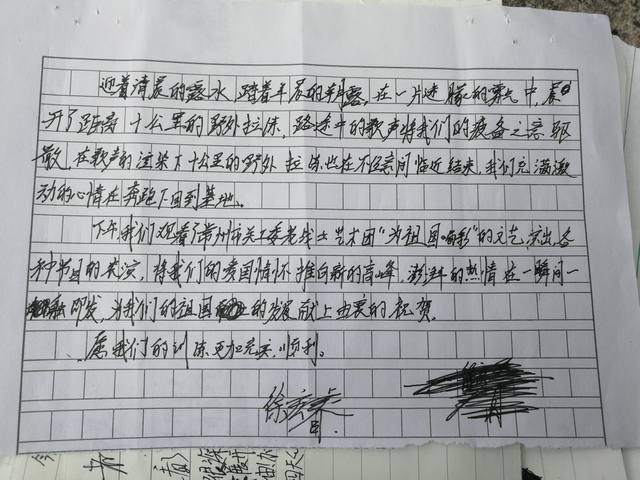 迎着清晨的露水,踏着早晨的朝露,在一片迷朦的雾气中,展
开了距离十公里的野外拉练,路途中的歌声将我们的疲备之意驱
散,在歌声的渲染下十公里的野外拉练也在不经意间临近结束,我们充满激
动的心情在奔跑下回到基地。
下午我们观看了常州市关工委老战士艺术团“为祖国喝彩”的文艺演出,各
种节目的表演,将我们的爱国情怀推向新的高峰,澎湃的热情在一瞬间一
发,为我们的祖国的发展献上由衷的祝贺。
愿我们的训练更加充实,顺利。
徐